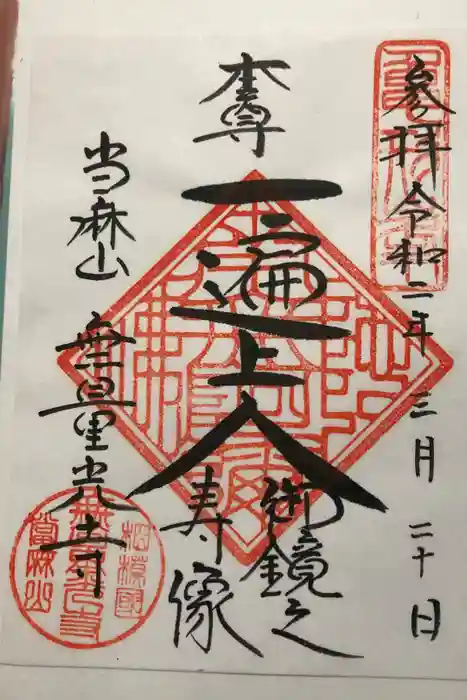 参拝 令和二年 三月 二十日
本尊
一遍上人
御鏡之
寿像
当麻山 無量光寺
相模國
無量光寺
當麻山